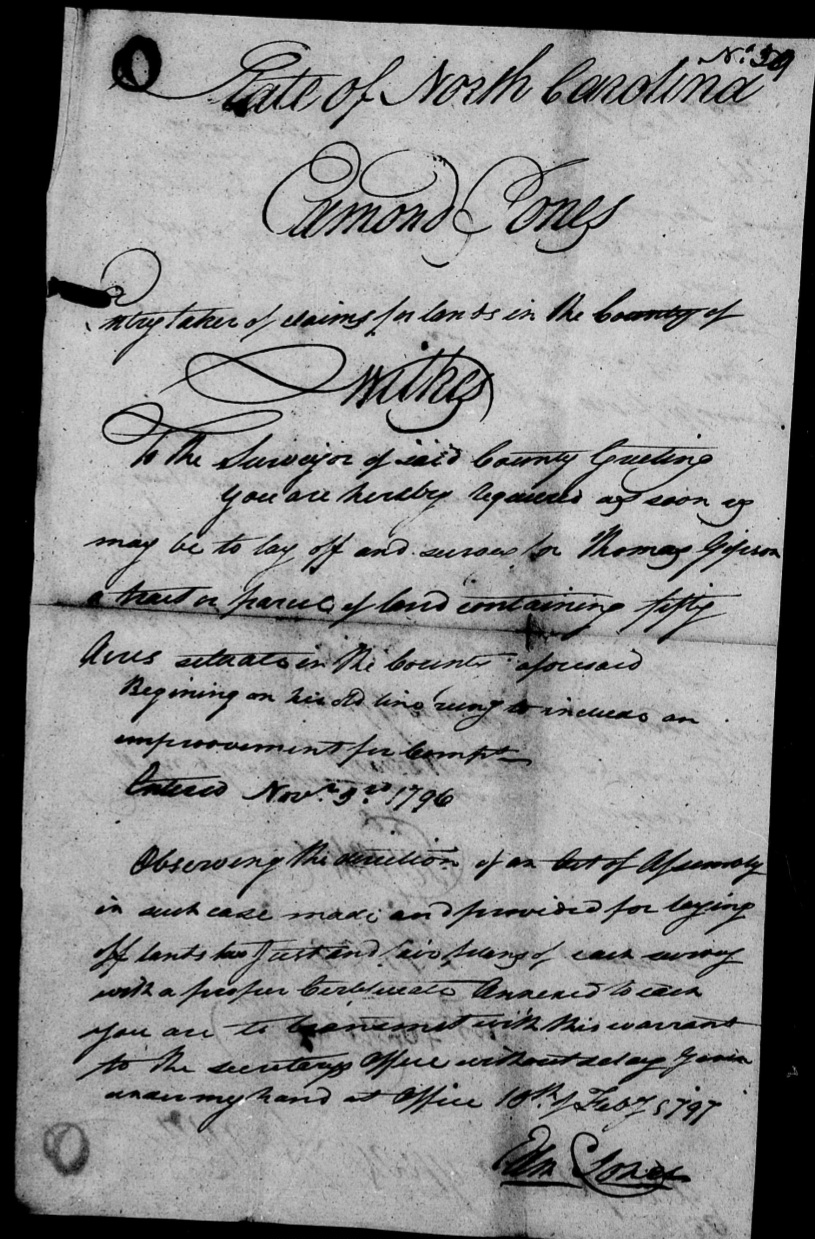 No. 59
State of North Carolina
Edmond Jones
Entry taker of claims for lands in the County of
Wilkes
To the Surveyor of said County Greeting
You are hereby required as soon as
may be to lay off and survey for Thomas Gipson
a tract or parcel of land containing fifty
Acres situate in the County aforesaid
Begining on his old line rung to include an
improovement for Compt
Entered Novr. 3rd. 1796
Observing the direction of an Act of Assembly
in such case made and provided for laying
off lands two Just and fair plans of each survey
with a proper Certificate Annexed to each
you are to transmit with this warrant
to the secretarys Office without delay Given
under my hand at Office 10th of Feby 1797
Edm Jones